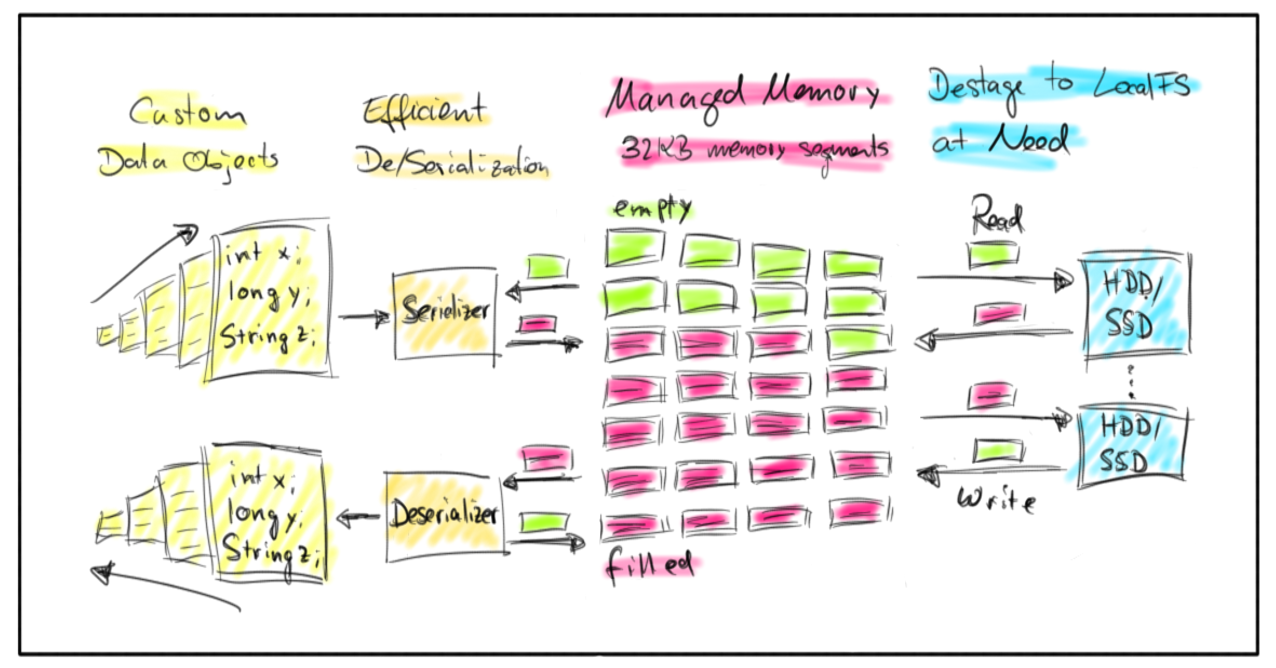 Custom
Data Objects
Efficient
De/Serialization
Managed Memory
32KB memory segments
Destage to LocalFS
at Need
empty
Read
int x;
long y;
String z;
Serializer
HDD/
SSD
HDD/
SSD
int x;
long y;
String z;
Deserializer
Write
filled